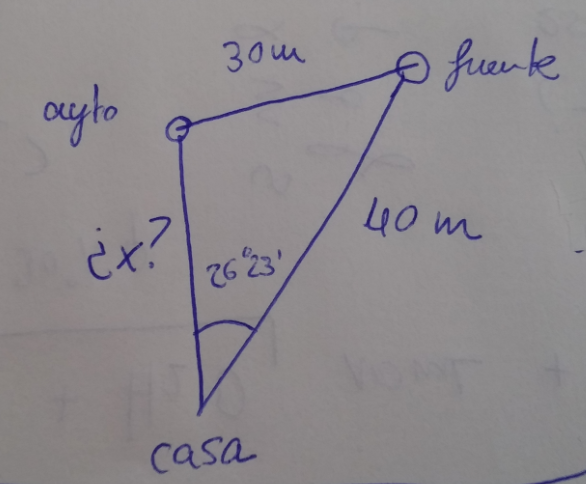 30m
fuente
ayto
40 m
¿x?
26°23'
casa